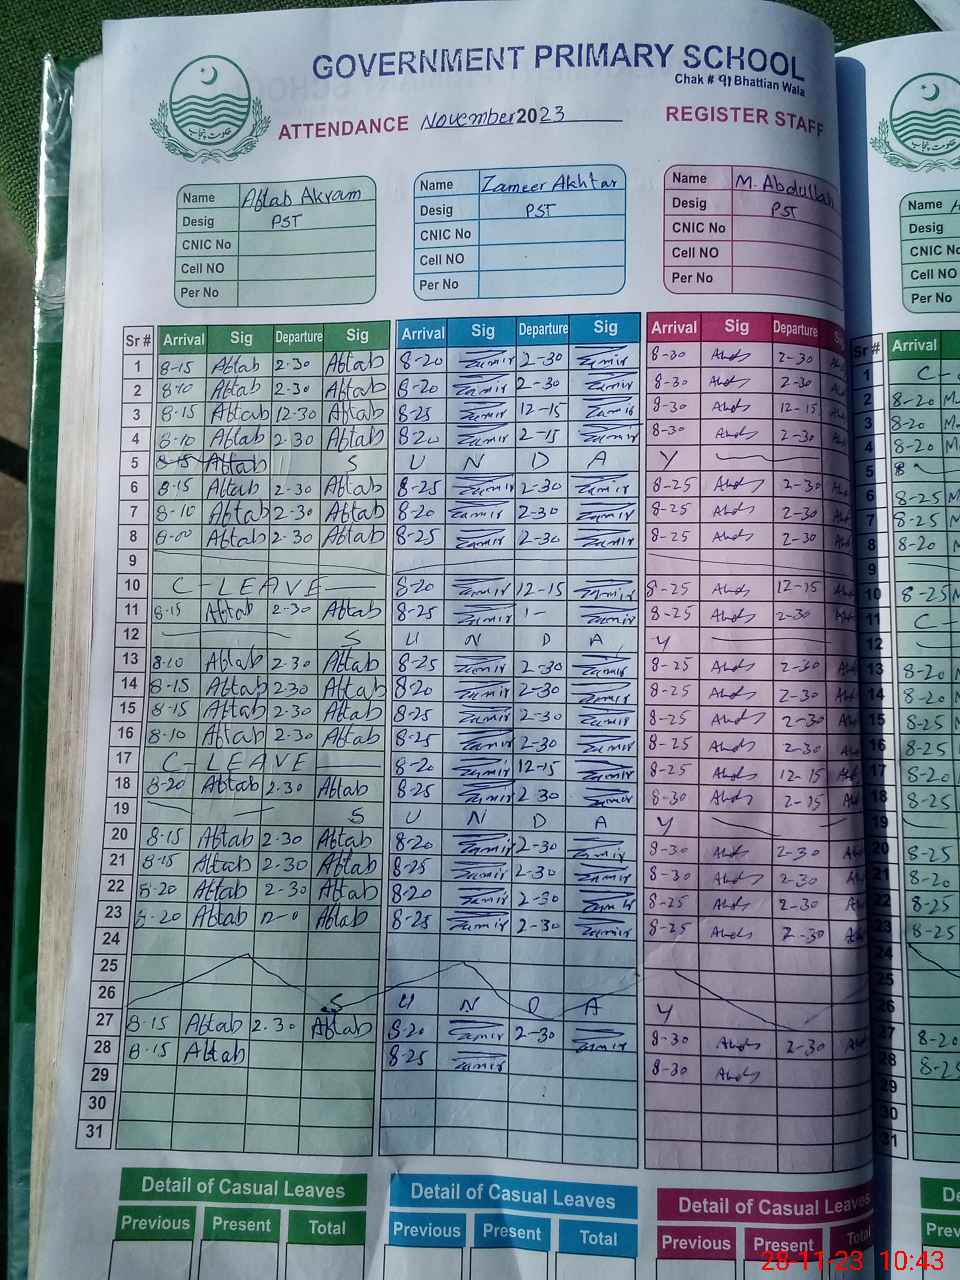 GOVERNMENT PRIMARY SCHOOL
Chak # 91 Bhattian Wala
ATTENDANCE November 2023 REGISTER STAFF
Name Aftab Akram Name Zameer Akhtar Name M. Abdullah Name
Desig PST Desig PST Desig PST Desig
CNIC No CNIC No CNIC No CNIC No
Cell NO Cell NO Cell NO Cell NO
Per No Per No Per No Per No
Sr # Arrival Sig Departure Sig Arrival Sig Departure Sig Arrival Sig Departure Sr # Arrival
1 8-15 Aftab 2-30 Aftab 8-20 Zamir 2-30 Zamir 8-30 2-30 1
2 8-10 Aftab 2-30 Aftab 8-20 Zamir 2-30 Zamir 8-30 2-30 2 8-20
3 8-15 Aftab 12-30 Aftab 8-25 Zamir 12-15 Zamir 8-30 12-15 3 8-20
4 8-10 Aftab 2-30 Aftab 8-20 Zamir 2-15 Zamir 8-30 2-30 4 8-20
5 8-15 Aftab S U N D A Y 5
6 8-15 Aftab 2-30 Aftab 8-25 Zamir 2-30 Zamir 8-25 2-30 6 8-25
7 8-10 Aftab 2-30 Aftab 8-20 Zamir 2-30 Zamir 8-25 2-30 7 8-25
8 8-00 Aftab 2-30 Aftab 8-25 Zamir 2-30 Zamir 8-25 2-30 8 8-20
9 9
10 C-LEAVE 8-20 Zamir 12-15 Zamir 8-25 12-15 10 8-25
11 8-15 Aftab 2-30 Aftab 8-25 Zamir 1- Zamir 8-25 2-30 11 C-
12 S U N D A Y 12
13 8-10 Aftab 2-30 Aftab 8-25 Zamir 2-30 Zamir 8-25 2-30 13 8-20
14 8-15 Aftab 2-30 Aftab 8-20 Zamir 2-30 Zamir 8-25 2-30 14 8-20
15 8-15 Aftab 2-30 Aftab 8-25 Zamir 2-30 Zamir 8-25 2-30 15 8-25
16 8-10 Aftab 2-30 Aftab 8-25 Zamir 2-30 Zamir 8-25 2-30 16 8-25
17 C-LEAVE 8-20 Zamir 12-15 Zamir 8-25 12-15 17 8-20
18 8-20 Aftab 2-30 Aftab 8-25 Zamir 2-30 Zamir 8-30 2-15 18 8-25
19 S U N D A Y 19
20 8-15 Aftab 2-30 Aftab 8-20 Zamir 2-30 Zamir 8-30 2-30 20 8-25
21 8-15 Aftab 2-30 Aftab 8-25 Zamir 2-30 Zamir 8-30 2-30 21 8-20
22 8-20 Aftab 2-30 Aftab 8-20 Zamir 2-30 Zamir 8-25 2-30 22 8-25
23 8-20 Aftab Aftab 8-25 Zamir 2-30 Zamir 8-25 2-30 23 8-25
24 24
25 25
26 S U N D A Y 26
27 8-15 Aftab 2-30 Aftab 8-20 Zamir 2-30 Zamir 8-30 2-30 27 8-20
28 8-15 Aftab 8-25 Zamir 8-30 28 8-25
29 29
30 30
31 31
Detail of Casual Leaves Detail of Casual Leaves Detail of Casual Leaves
Previous Present Total Previous Present Total Previous Present Total
28-11-23 10:43